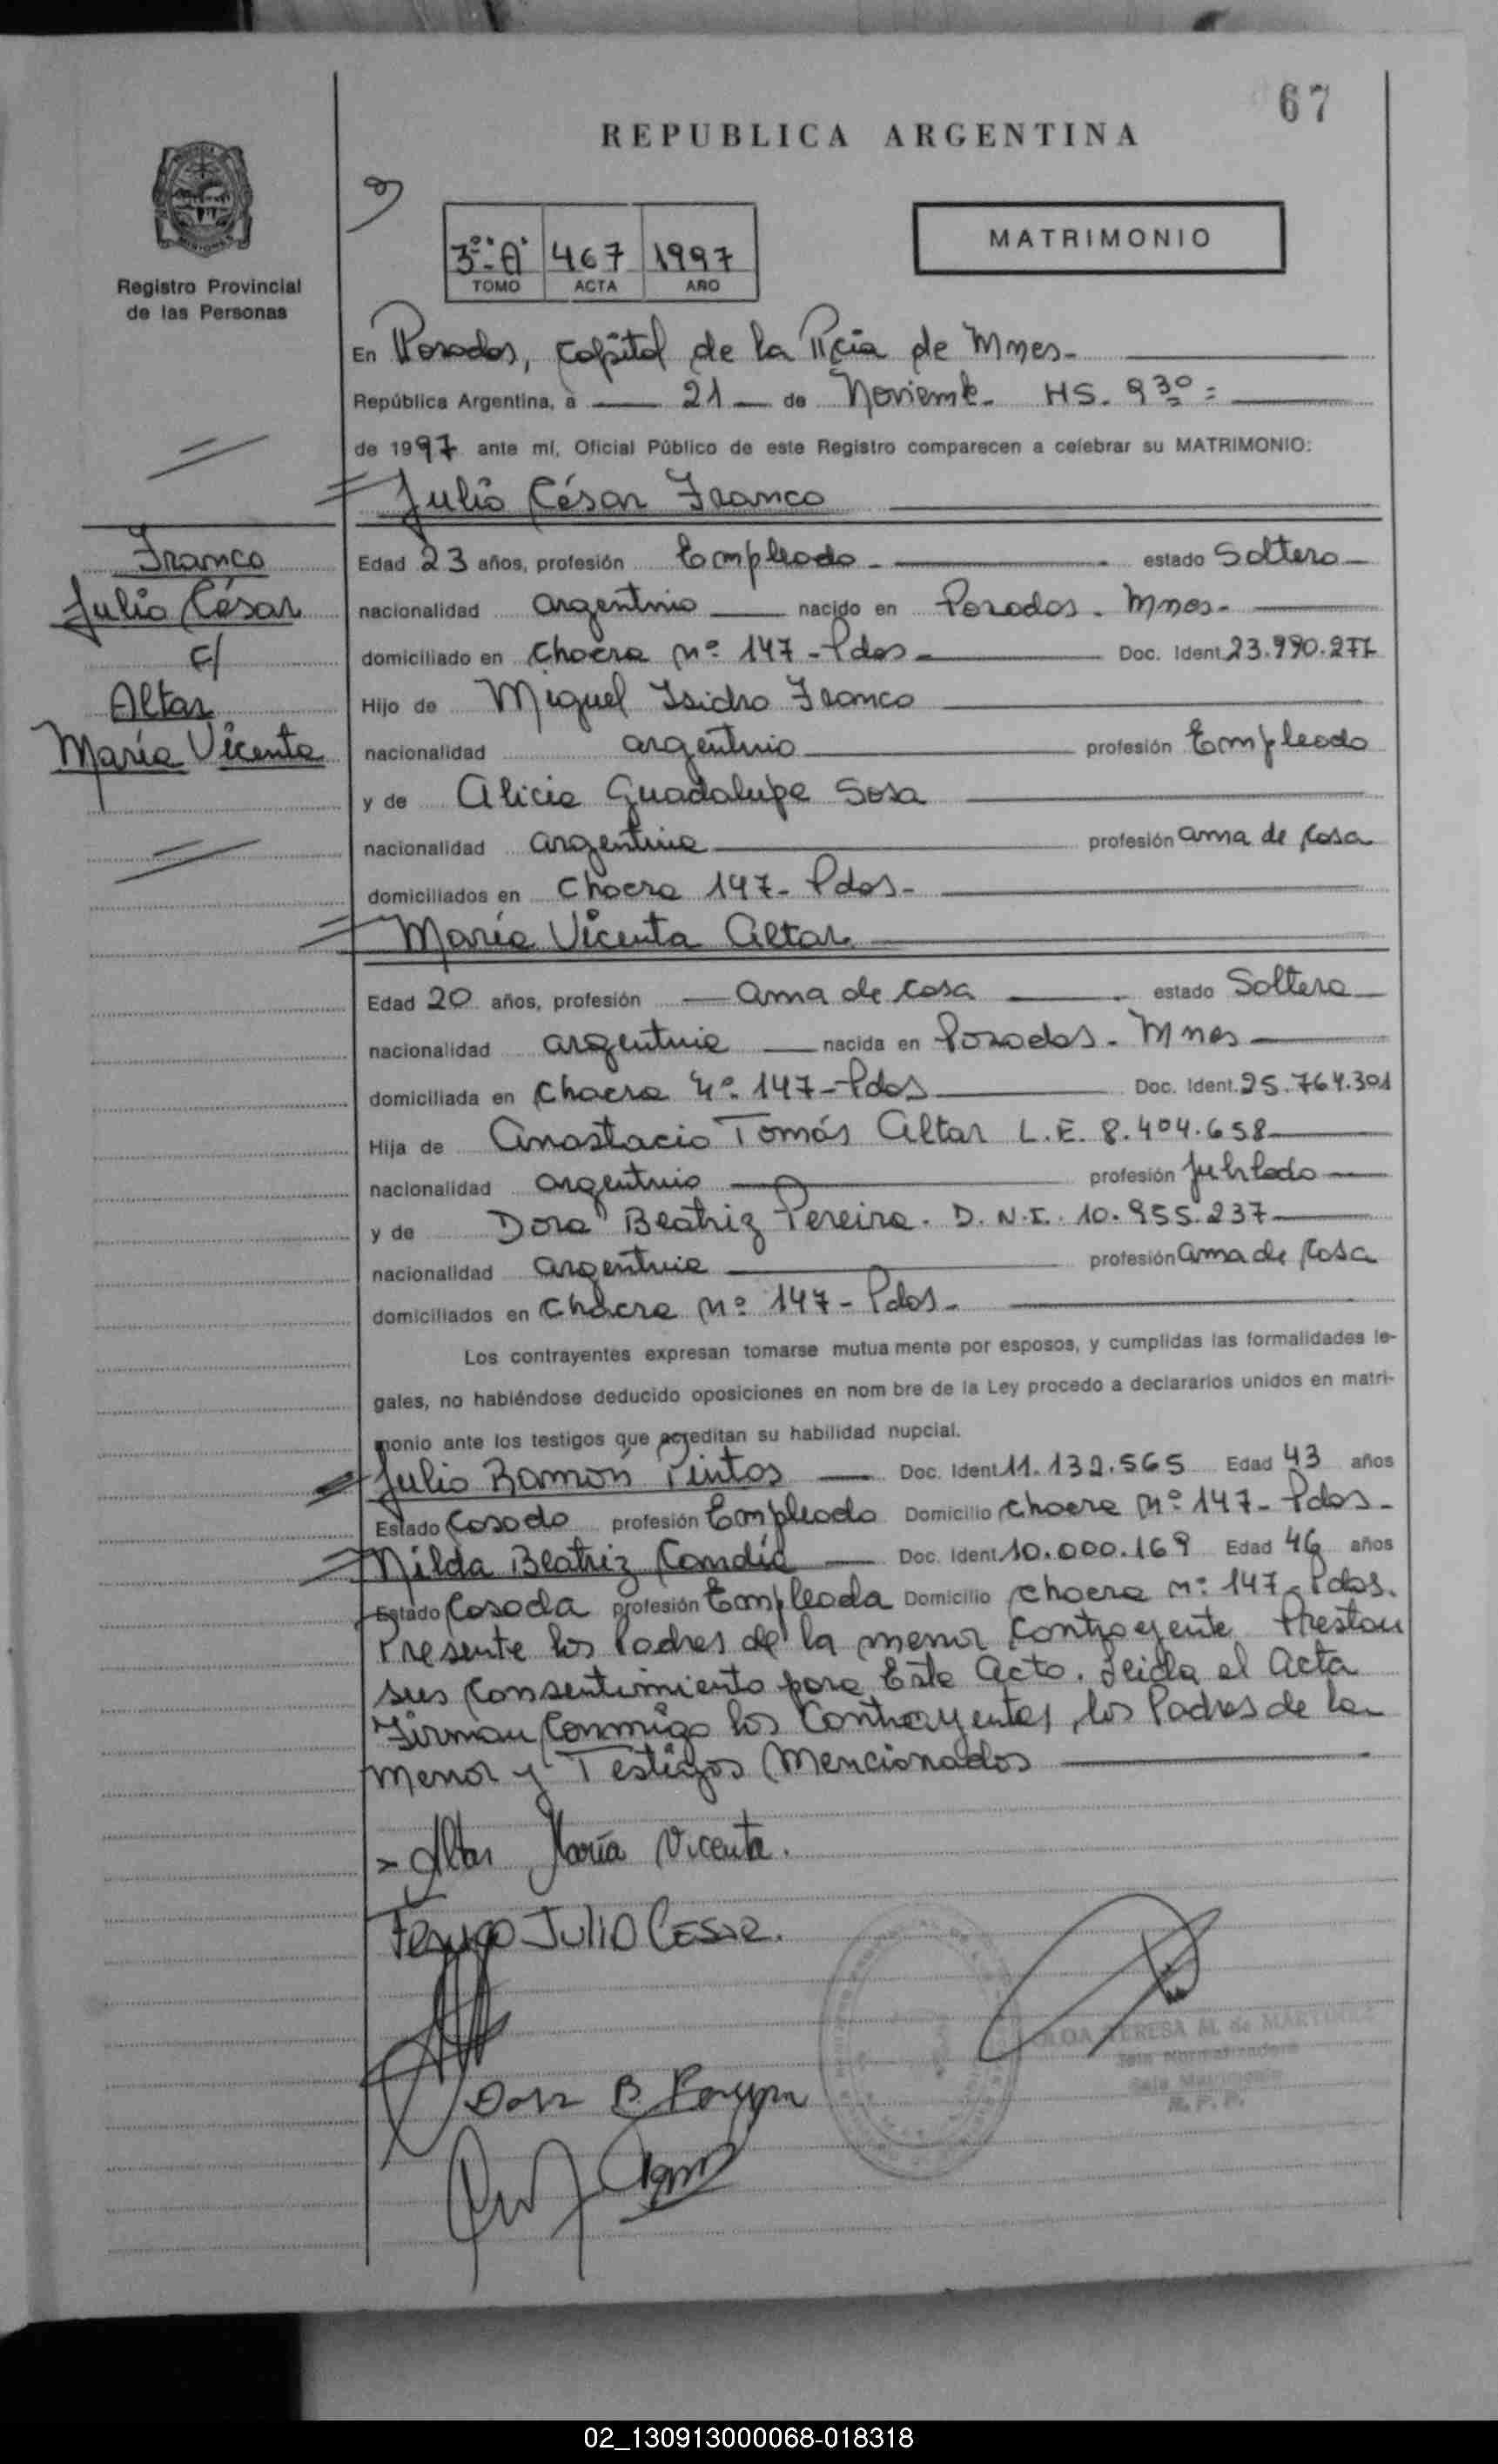 67
REPUBLICA ARGENTINA
MATRIMONIO
3º "A" 467 1997
TOMO ACTA AÑO
Registro Provincial
de las Personas
En Posadas, capital de la Pcia de Mnes-
República Argentina, a 21 de Noviemb- HS. 9 30 =
de 1997 ante mí, Oficial Público de este Registro comparecen a celebrar su MATRIMONIO:
Julio César Franco
Franco
Julio César
c/
Altar
María Vicenta
Edad 23 años, profesión Empleado - estado Soltero
nacionalidad argentino nacido en Posadas - Mnes-
domiciliado en Chacra nº 147 - Pdas - Doc. Ident. 23.990.277
Hijo de Miguel Isidro Franco
nacionalidad argentino profesión Empleado
y de Alicia Guadalupe Sosa
nacionalidad argentina profesión ama de casa
domiciliados en Chacra 147 - Pdas -
María Vicenta Altar
Edad 20 años, profesión Ama de casa estado Soltera
nacionalidad argentina nacida en Posadas - Mnes
domiciliada en Chacra nº 147 - Pdas Doc. Ident. 25.764.301
Hija de Anastacio Tomás Altar L.E. 8.404.658
nacionalidad argentino profesión Jubilado
y de Dora Beatriz Pereira - D.N.I. 10.955.237
nacionalidad argentina profesión ama de casa
domiciliados en Chacra nº 147 - Pdas -
Los contrayentes expresan tomarse mutua mente por esposos, y cumplidas las formalidades le-
gales, no habiéndose deducido oposiciones en nom bre de la Ley procedo a declararlos unidos en matri-
monio ante los testigos que acreditan su habilidad nupcial.
Julio Ramón Pintos Doc. Ident. 11.132.565 Edad 43 años
Estado Casado profesión Empleado Domicilio Chacra nº 147 - Pdas -
Nilda Beatriz Candia Doc. Ident. 10.000.169 Edad 46 años
Estado Casada profesión Empleada Domicilio Chacra nº 147 - Pdas.
Presente los Padres de la menor Contrayente Prestan
sus consentimiento para Este Acto. Leida el Acta
Firman Conmigo los Contrayentes, los Padres de la
Menor y Testigos Mencionados
Altar María Vicenta.
Franco JULIO CESAR.
Dora B. Pereira
TERESA M. de MARTINEZ
R. P. P.
02_130913000068-018318